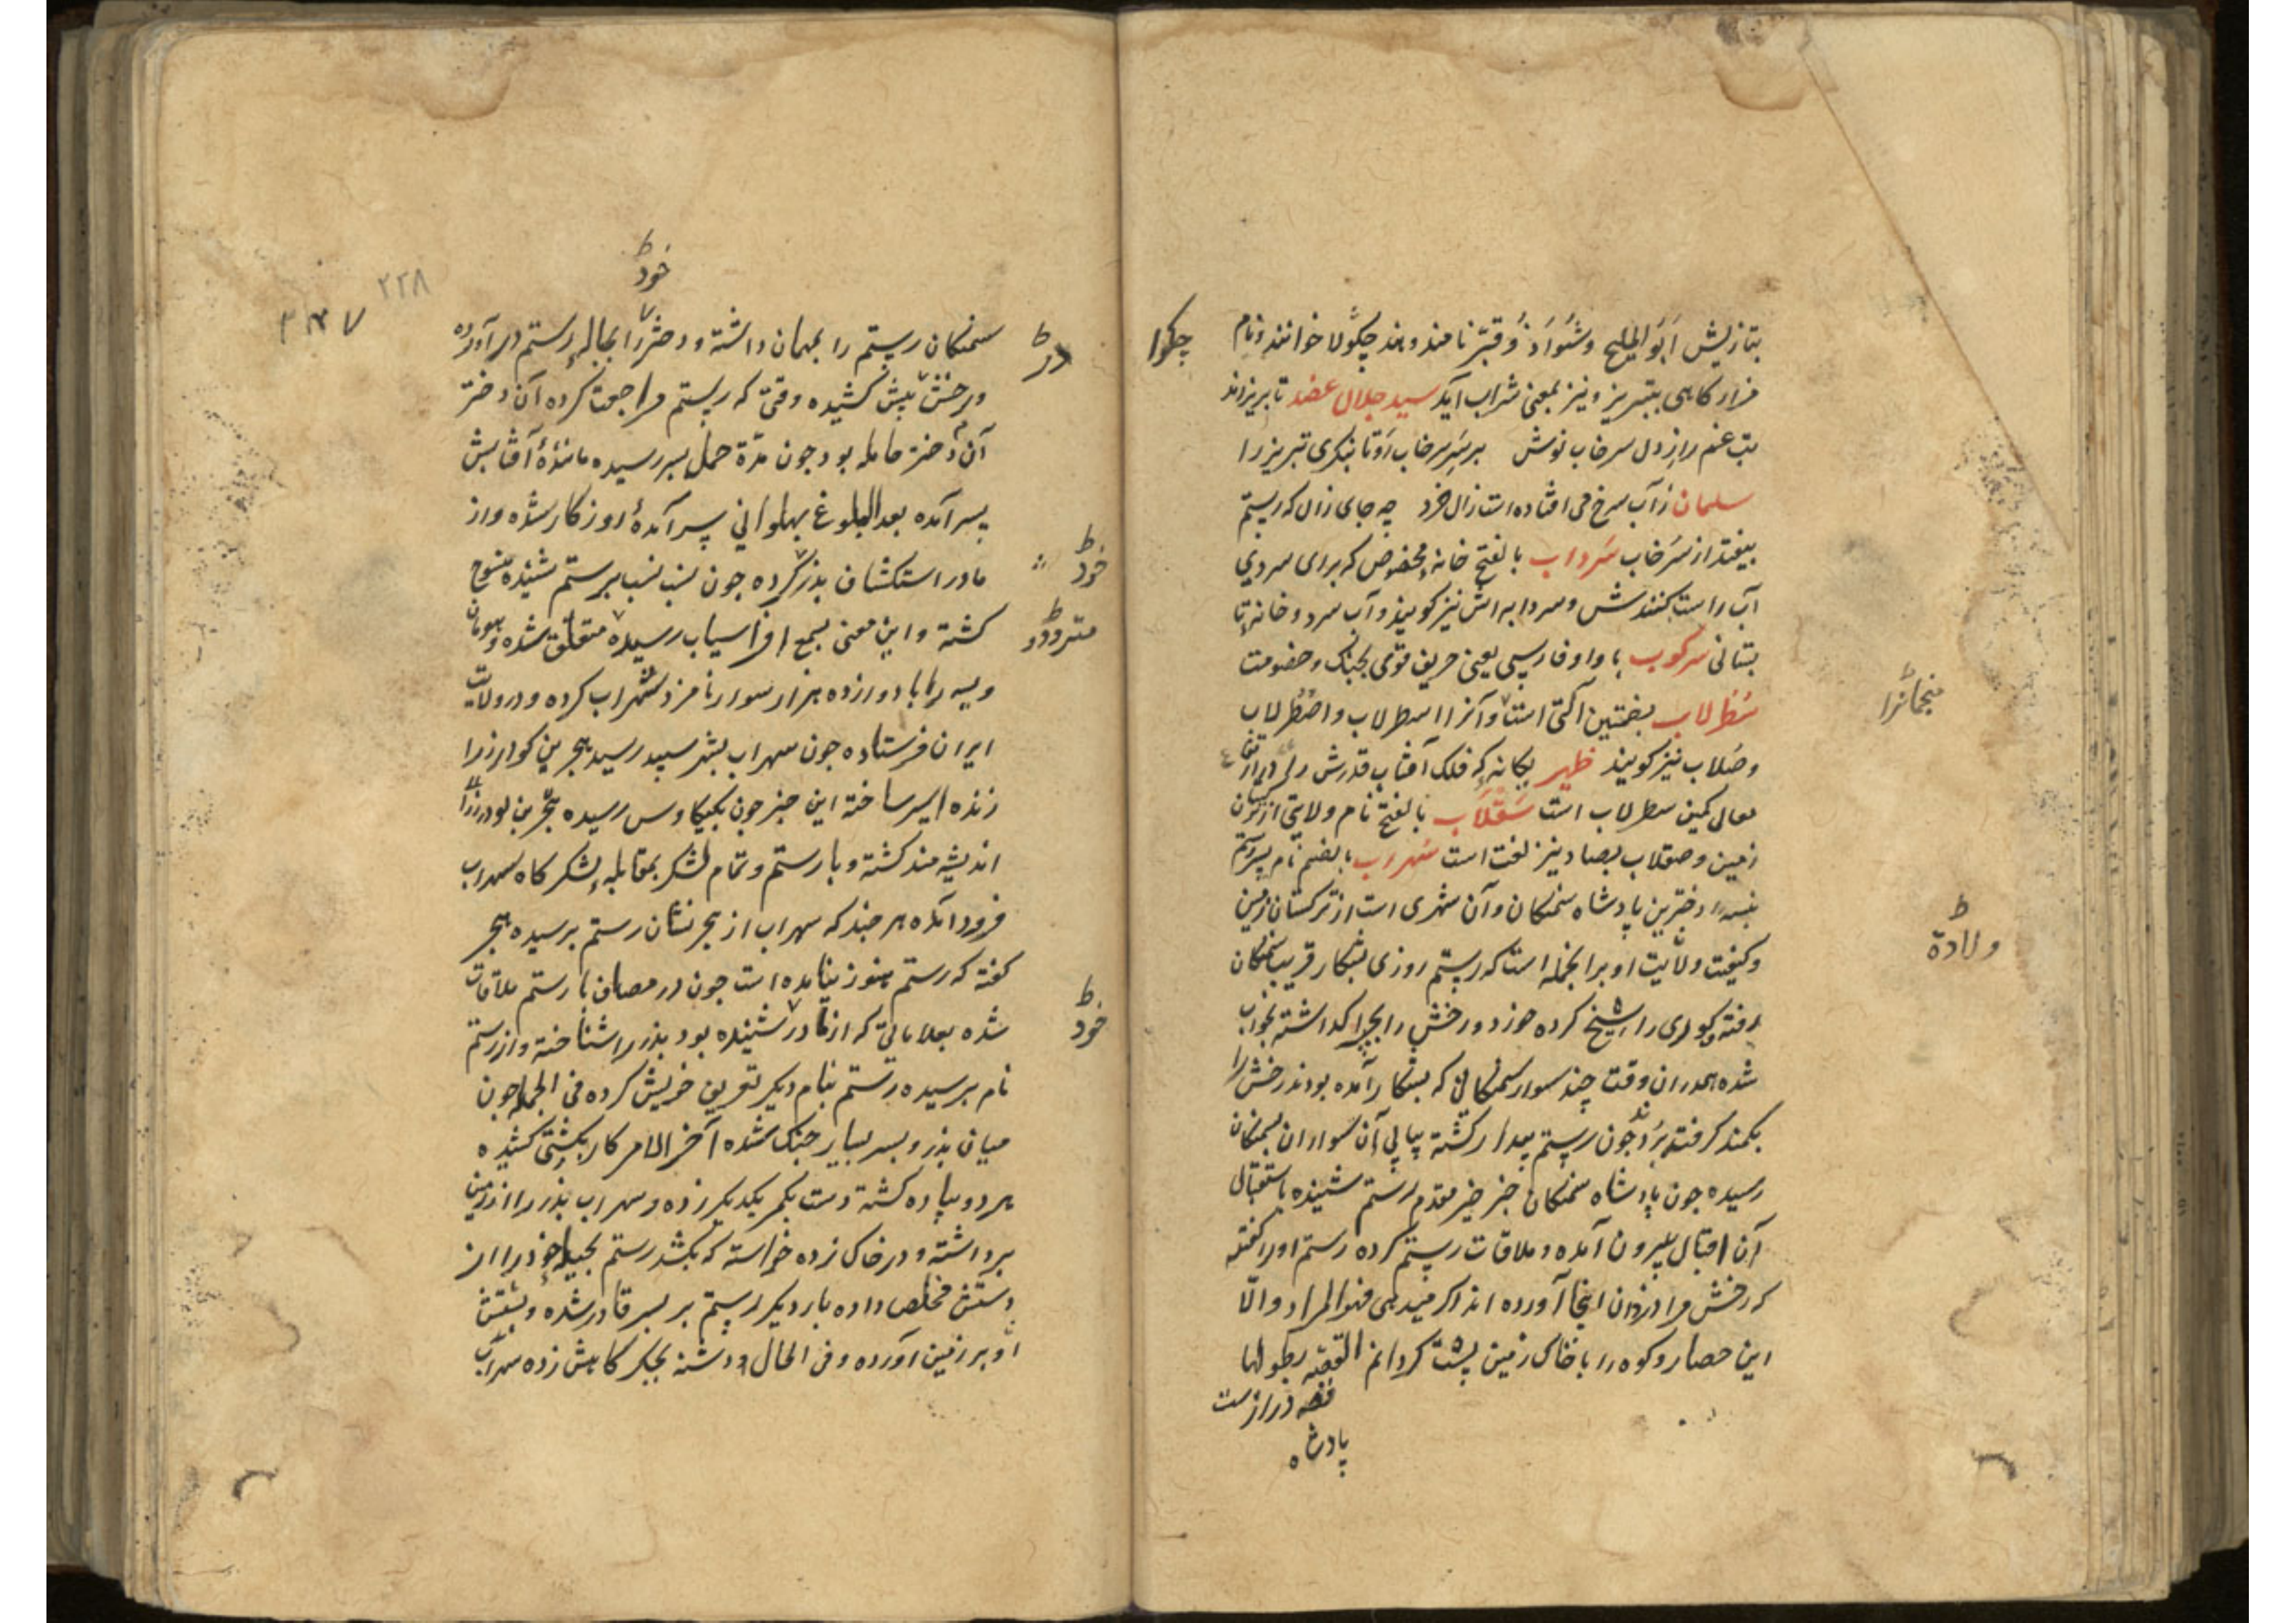 بتازیش اَبَوالملیح و شَنَوادْ و قبّر نامند و هند چکولا خوانند و نام
چکوا
مزار کاهی بتبریز و نیز بمعنی شراب آید سید جلال عضد تا بریزاند
بت غم راز دل سرخاب نوش بر سَرِ سرخاب رَو تا بنکری تبریز را
سلمان ز آب سرخ می افتاده است زال خرد چه جای زال که رستم
بیفتد از سرخاب سَرداب بالفتح خانهٔ مخصوص که برای سردی
آب راست کنندش و سردابه اش نیز کویند و آب سرد و خانه تا
بستانی سرکوب با واو فارسی یعنی حریف قوی بجنک و خصومت
سُطُرلاب بضمتین آلتی است و آنرا اسطرلاب و اصطرلاب
منجمانرا
و صَلاب نیز کویند ظهیر یکانه که فلک آفتاب قدرش را
معالی کمین سطرلاب است سَقْلاب بالفتح نام ولایتی از
زمین و صقلاب بصاد نیز لغت است سُهراب بالضم نام پسر رستم
نبسهٔ دخترین پادشاه سمنکان و آن شهری است از ترکستان زمین
و کیفیت ولایت او برانجمله است که رستم روزی بشکار قریب سمنکان
ولادة
رفته و کوری را بسیخ کرده خورد و رخش را بچرا کذاشته بخواب
شده همدران وقت چند سوار سمنکانی که بشکار آمده بودند رخش را
بکمند کرفته بردند چون رستم بیدار کشته بپای آن سواران بسمنکان
رسیده چون پادشاه سمنکان خبر خیر مقدم رستم شنیده باستقبال
آن اقبال بیرون آمده و ملاقات رستم کرده رستم او را کفته
که رخش مرا دزدان اینجا آورده اند اکر میدهی فهو المراد و الّا
این حصار و کوه را با خاک زمین پست کردانم القصه بطولها
قصه درازست
پادشاه
خود
۲۲۸
سمنکان رستم را مهمان داشته و دخترش را بحباله رستم درآورده
و رخش پیش کشیده وقتی که رستم مراجعت کرده آن دختر
آن دختر حامله بود چون مدّة حمل بسر رسیده مانندهٔ آفتابش
پسر آمده بعد البلوغ پهلوانی سرآمدهٔ روزکار شده و از
مادر استکشاف پدر کرده چون نسب برستم شنیده
خود
کشته و این معنی بسمع افراسیاب رسیده متعلق شده و هومان
متردد
ویسه را با دوازده هزار سوار نامزد سهراب کرده و در ولایت
ایران فرستاده چون سهراب بشهر سپید رسید هجیر بن کودرز را
زنده اسیر ساخته این خبر چون بکیکاوس رسیده
اندیشه مند کشته و با رستم و تمام لشکر بمقابله لشکر کاه سهراب
فرود آمده هر چند که سهراب از هجیر نشان رستم پرسیده هجیر
کفته که رستم هنوز نیامده است چون در مصاف با رستم ملاقات
شده بعلاماتی که از مادر شنیده بود پدر را شناخته و از رستم
خود
نام پرسیده رستم بنام دیکر تعریف خویش کرده فی الجمله چون
میان پدر و پسر بسیار جنک شده آخر الامر کار بکشتی کشیده
هر دو پیاده کشته دست بکمر یکدیکر زده و سهراب پدر را از زمین
برداشته و در خاک زده خواسته که بکشد رستم بحیله خود را از
دستش مخلص داده بار دیکر رستم بر پسر قادر شده و پشتش
او بر زمین آورده و فی الحال دشنه بجکر کاهش زده سهراب